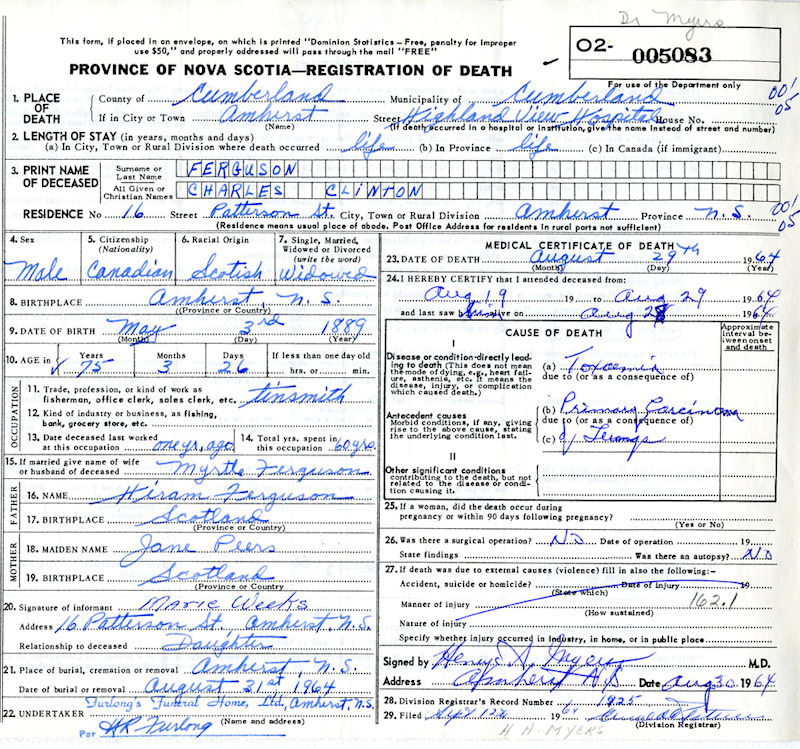 Dr Myers
This form, if placed in an envelope, on which is printed "Dominion Statistics – Free, penalty for improper
use $50," and properly addressed will pass through the mail "FREE"
O2- 005083
PROVINCE OF NOVA SCOTIA—REGISTRATION OF DEATH
For use of the Department only
1. PLACE OF DEATH { County of Cumberland Municipality of Cumberland 001
If in City or Town Amherst Street Highland View Hospital House No. 05
(Name) (If death occurred in a hospital or institution, give the name instead of street and number)
2. LENGTH OF STAY (in years, months and days)
(a) In City, Town or Rural Division where death occurred life (b) In Province life (c) In Canada (if immigrant)
3. PRINT NAME OF DECEASED Surname or Last Name FERGUSON
All Given or Christian Names CHARLES CLINTON
RESIDENCE No 16 Street Patterson St. City, Town or Rural Division Amherst Province N.S. 001 05
(Residence means usual place of abode. Post Office Address for residents in rural parts not sufficient)
4. Sex 5. Citizenship (Nationality) 6. Racial Origin 7. Single, Married, Widowed or Divorced (write the word)
Male Canadian Scotish Widowed
8. BIRTHPLACE Amherst, N.S.
(Province or County)
9. DATE OF BIRTH May 3rd 1889
(Month) (Day) (Year)
10. AGE in Years Months Days If less than one day old
75 3 26 hrs. or min.
OCCUPATION
11. Trade, profession, or kind of work as
fisherman, office clerk, sales clerk, etc. tinsmith
12. Kind of industry or business, as fishing,
bank, grocery store, etc.
13. Date deceased last worked
at this occupation one yr. ago 14. Total yrs. spent in
this occupation 60 yrs.
15. If married give name of wife
or husband of deceased Myrtle Ferguson
FATHER
16. NAME Hiram Ferguson
17. BIRTHPLACE Scotland
(Province or County)
MOTHER
18. MAIDEN NAME Jane Peers
19. BIRTHPLACE Scotland
(Province or Country
20. Signature of informant Marie Weeks
Address 16 Patterson St. Amherst, N.S.
Relationship to deceased Daughter
21. Place of burial, cremation or removal Amherst, N.S.
Date of burial or removal August 31st 1964
Furlong's Funeral Home, Ltd, Amherst, N.S.
22. UNDERTAKER (Name and address)
Per HR Furlong
MEDICAL CERTIFICATE OF DEATH
23. DATE OF DEATH August 29th 1964
(Month) (Day) (Year)
24. I HEREBY CERTIFY that I attended deceased from:
Aug 19 19 to Aug 29 1964
and last saw him alive on Aug 28 1964
CAUSE OF DEATH
Approximate interval between onset and death
I
Disease or condition directly leading to death (This does not mean the mode of dying, e.g., heart failure, asthenia, etc. It means the disease, injury, or complication which caused death.)
(a) Toxaemia
due to (or as a consequence of)
Antecedent causes
Morbid conditions, if any, giving rise to the above cause, stating the underlying condition last.
(b) Primary Carcinoma
due to (or as a consequence of)
(c) of Lungs
II
Other significant conditions
contributing to the death, but not related to the disease or condition causing it.
25. If a woman, did the death occur during
pregnancy or within 90 days following pregnancy?
(Yes or No)
26. Was there a surgical operation? No Date of operation 19
State findings Was there an autopsy? No
27. If death was due to external causes (violence) fill in also the following:-
Accident, suicide or homicide? Date of injury 19
(State which)
Manner of injury 162.1
(How sustained)
Nature of injury
Specify whether injury occurred in industry, in home, or in public place
Signed by Henry A. Myers M.D.
Address Amherst N.S Date Aug 30 1964
28. Division Registrar's Record Number 1925
29. Filed Sept 12 1964
(Division Registrar)
H A MYERS